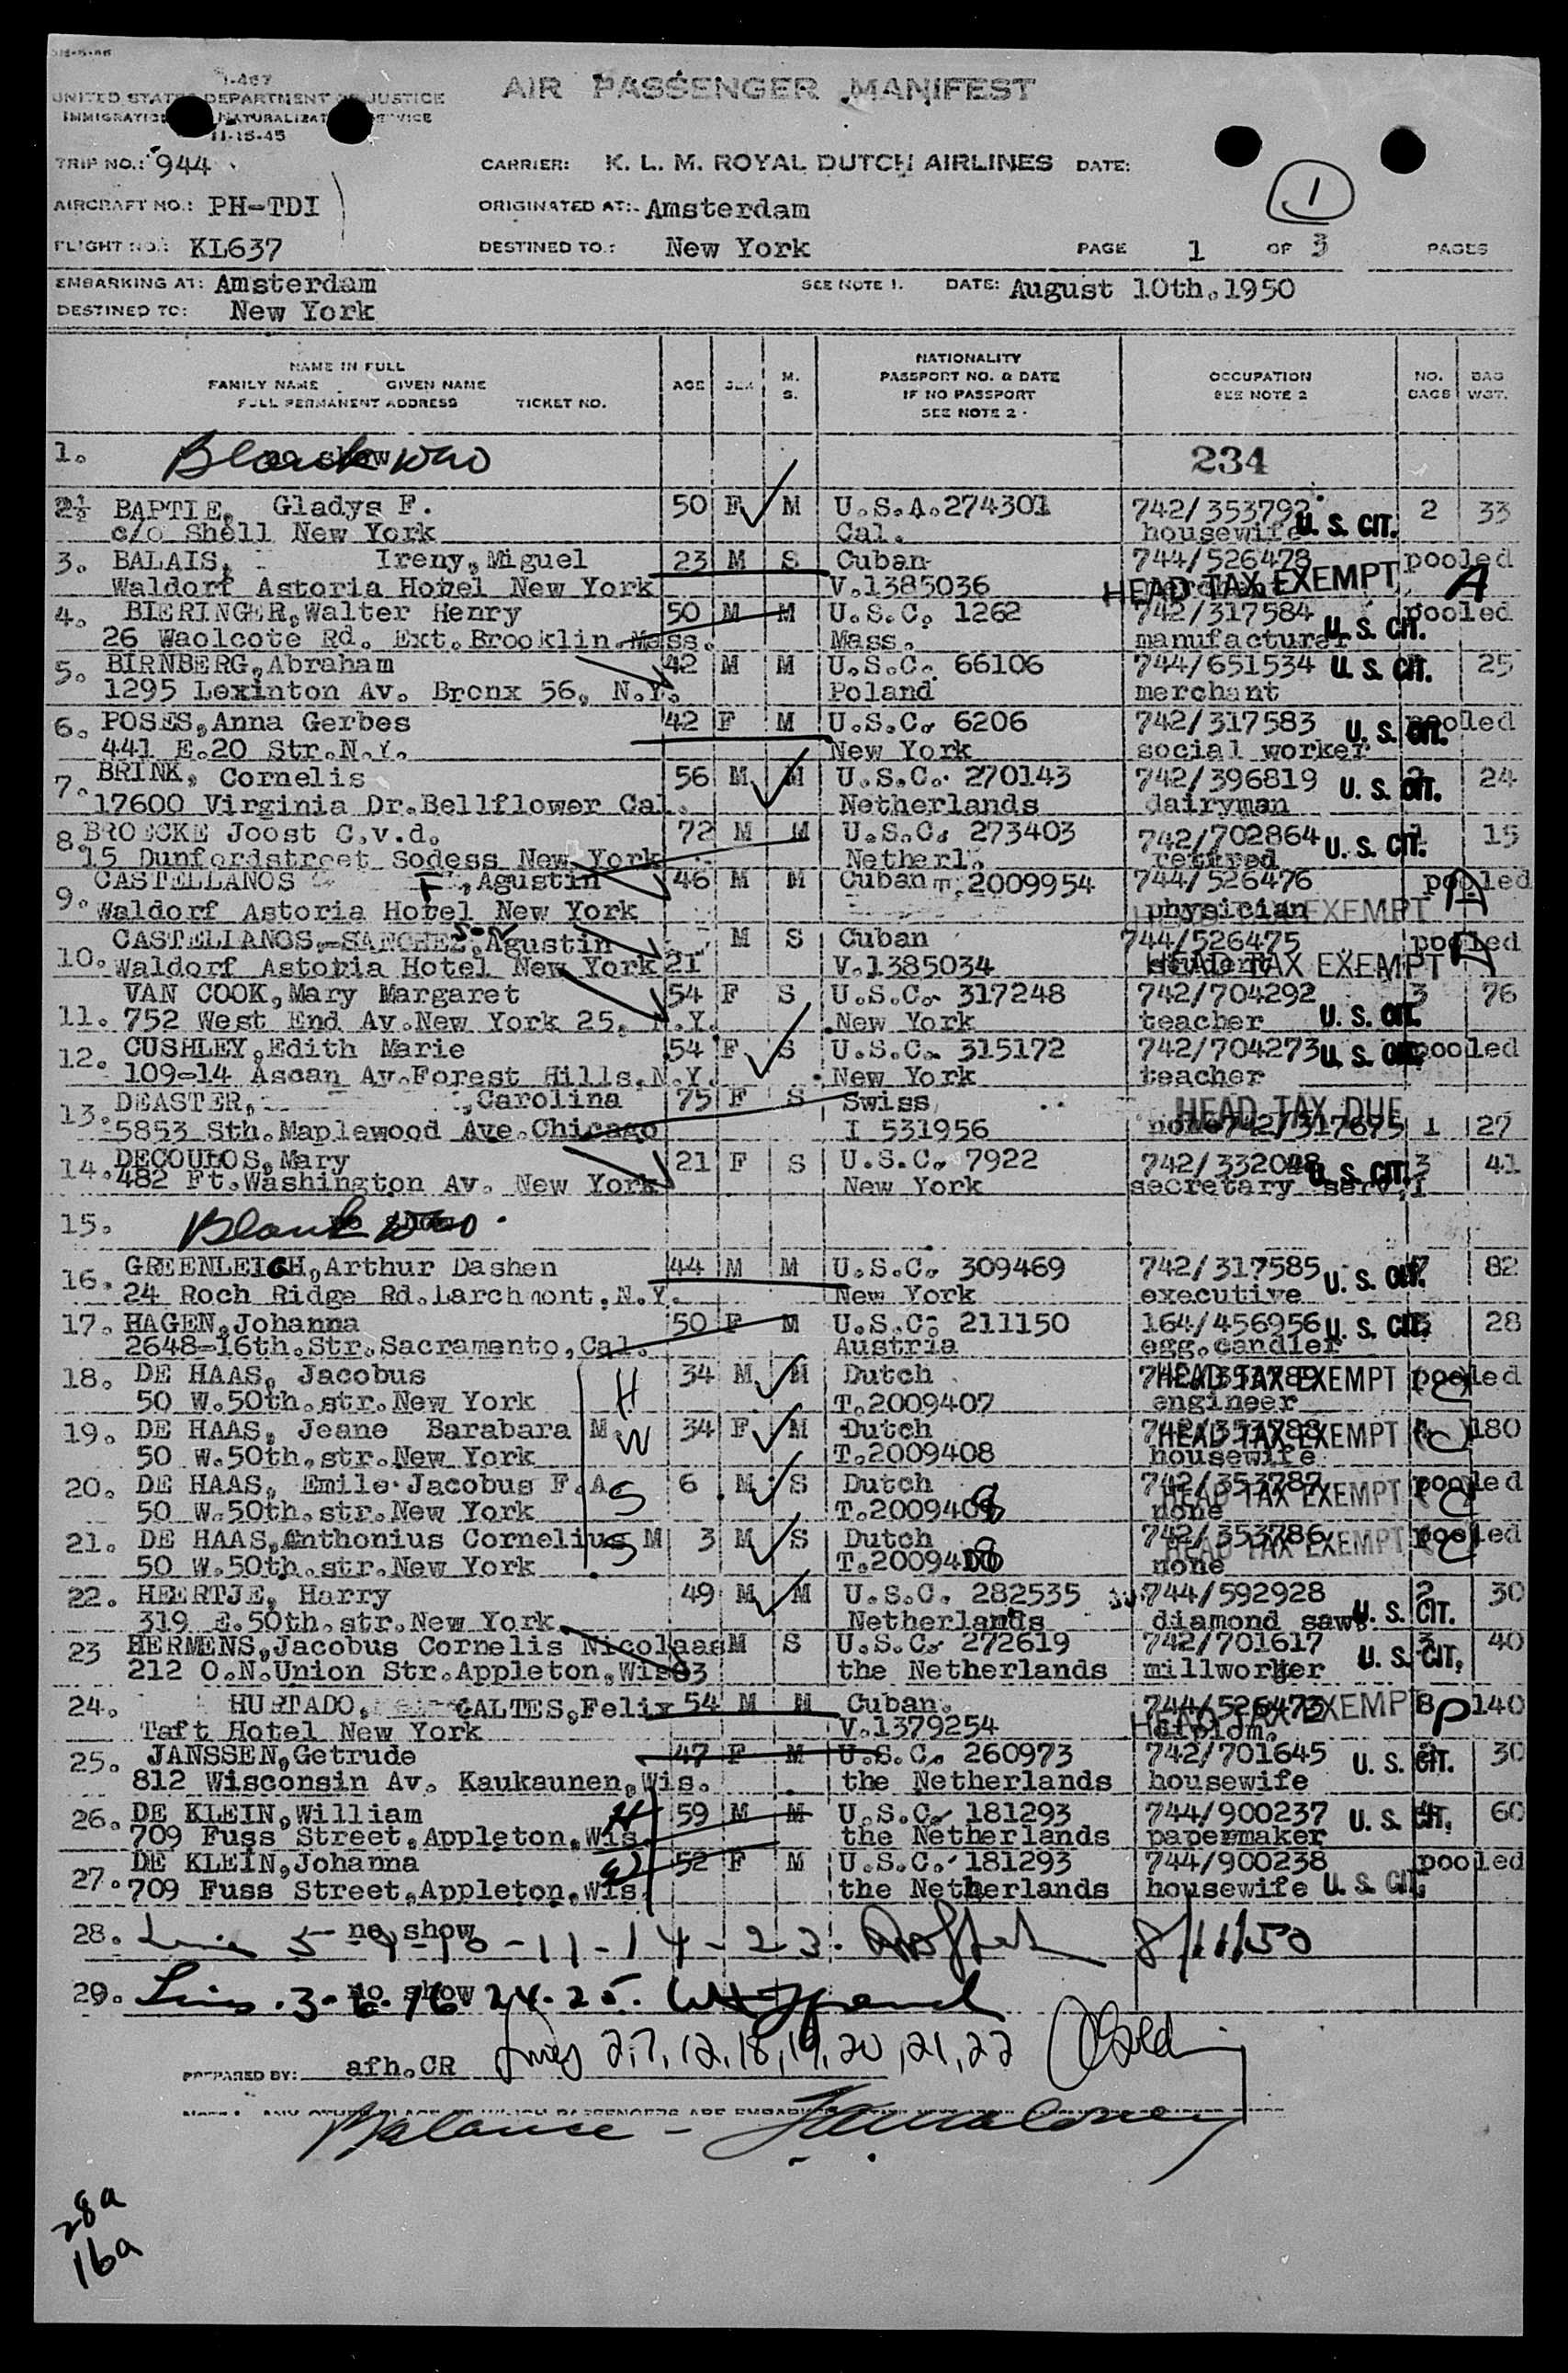 I-467
UNITED STATES DEPARTMENT OF JUSTICE
IMMIGRATION NATURALIZATION SERVICE
11-15-45
AIR PASSENGER MANIFEST
TRIP NO.: 944
CARRIER: K. L. M. ROYAL DUTCH AIRLINES DATE:
1
AIRCRAFT NO.: PH-TDI
ORIGINATED AT:- Amsterdam
FLIGHT NO.: KL637
DESTINED TO.: New York
PAGE 1 OF 3 PAGES
EMBARKING AT: Amsterdam
SEE NOTE 1. DATE: August 10th.1950
DESTINED TO: New York
NAME IN FULL
FAMILY NAME GIVEN NAME
FULL PERMANENT ADDRESS TICKET NO.
AGE SEX M. S.
NATIONALITY
PASSPORT NO. & DATE
IF NO PASSPORT
SEE NOTE 2.
OCCUPATION
SEE NOTE 2
NO. BAGS
BAG WGT.
1. show 234
2½ BAPTIE, Gladys F. 50 F M U.S.A.274301 742/353792 2 33
c/o Shell New York Cal. housewife U. S. CIT.
3. BALAIS, Ireny,Miguel 23 M S Cuban 744/526478 pooled
Waldorf Astoria Hotel New York V.1385036 HEAD TAX EXEMPT A
4. BIERINGER,Walter Henry 50 M M U.S.C. 1262 742/317584 pooled
26 Waolcote Rd. Ext.Brooklin.Mass. Mass. manufacturer U. S. CIT.
5. BIRNBERG,Abraham 42 M M U.S.C. 66106 744/651534 U. S. CIT. 25
1295 Lexinton Av. Bronx 56, N.Y. Poland merchant
6. POSES,Anna Gerbes 42 F M U.S.C. 6206 742/317583 pooled
441 E.20 Str.N.Y. New York social worker U. S. CIT.
7. BRINK, Cornelis 56 M M U.S.C. 270143 742/396819 U. S. CIT. 24
17600 Virginia Dr.Bellflower Cal. Netherlands dairyman
8. BROECKE Joost C.v.d. 72 M M U.S.C. 273403 742/702864 U. S. CIT. 15
15 Dunfordstreet Sodess New York Netherl. retired
9. CASTELLANOS F ,Agustin 46 M M Cuban T.2009954 744/526476 pooled
Waldorf Astoria Hotel New York physician EXEMPT A
10. CASTELLANOS,-SANCHEZ,Agustin M S Cuban 744/526475 pooled
Waldorf Astobia Hotel New York 21 V.1385034 student HEAD TAX EXEMPT A
11. VAN COOK,Mary Margaret 54 F S U.S.C. 317248 742/704292 3 76
752 West End Av.New York 25, N.Y. New York teacher U. S. CIT.
12. CUSHLEY,Edith Marie 54 F S U.S.C. 315172 742/704273 U. S. CIT. pooled
109-14 Ascan Av.Forest Hills.N.Y. New York teacher
13. DEASTER, ,Carolina 75 F S Swiss HEAD TAX DUE
5853 Sth.Maplewood Ave.Chicago I 531956 none 742/317675 1 27
14. DECOULOS,Mary 21 F S U.S.C. 7922 742/332048 U. S. CIT. 3 41
482 Ft.Washington Av. New York New York secretary serv.
15.
16. GREENLEIGH,Arthur Dashen 44 M M U.S.C. 309469 742/317585 U. S. CIT. 7 82
24 Roch Ridge Rd.Larchmont.N.Y. New York executive
17. HAGEN,Johanna 50 F M U.S.C. 211150 164/456956 U. S. CIT. 3 28
2648-16th.Str.Sacramento,Cal. Austria egg.candler
18. DE HAAS, Jacobus H 34 M M Dutch HEAD TAX EXEMPT pooled
50 W.50th.str.New York T.2009407 engineer
19. DE HAAS, Jeane Barabara M. W 34 F M Dutch 742/353788 HEAD TAX EXEMPT 180
50 W.50th.str.New York T.2009408 housewife
20. DE HAAS, Emile Jacobus F.A. S 6 M S Dutch 742/353787 pooled
50 W.50th.str.New York none HEAD TAX EXEMPT
21. DE HAAS,Anthonius Cornelius M S 3 M S Dutch 742/353786 pooled
50 W.50th.str.New York none HEAD TAX EXEMPT
22. HEERTJE, Harry 49 M M U.S.C. 282535 744/592928 2 30
319 E.50th.str.New York. Netherlands diamond saw. U. S. CIT.
23 HERMENS,Jacobus Cornelis Nicolaas M S U.S.C. 272619 742/701617 3 40
212 O.N.Union Str.Appleton,Wis. the Netherlands millworker U. S. CIT.
24. HURTADO, GALTES,Felix 54 M M Cuban. 744/526473 EXEMPT 8 P 140
Taft Hotel New York V.1379254
25. JANSSEN,Getrude 47 F M U.S.C. 260973 742/701645 U. S. CIT. 30
812 Wisconsin Av. Kaukaunen,Wis. the Netherlands housewife
26. DE KLEIN,William H 59 M M U.S.C. 181293 744/900237 U. S. CIT. 60
709 Fuss Street,Appleton,Wis. the Netherlands papermaker
27. DE KLEIN,Johanna W 52 F M U.S.C. 181293 744/900238 pooled
709 Fuss Street,Appleton,Wis. the Netherlands housewife U. S. CIT.
28. no show 5-9-10-11-14-23. 8/11/50
29. no show Lines.3-6.16.24-25.
PREPARED BY: afh.CR Lines 2,7,12,18,19,20,21,22
Balance -
28a
16a